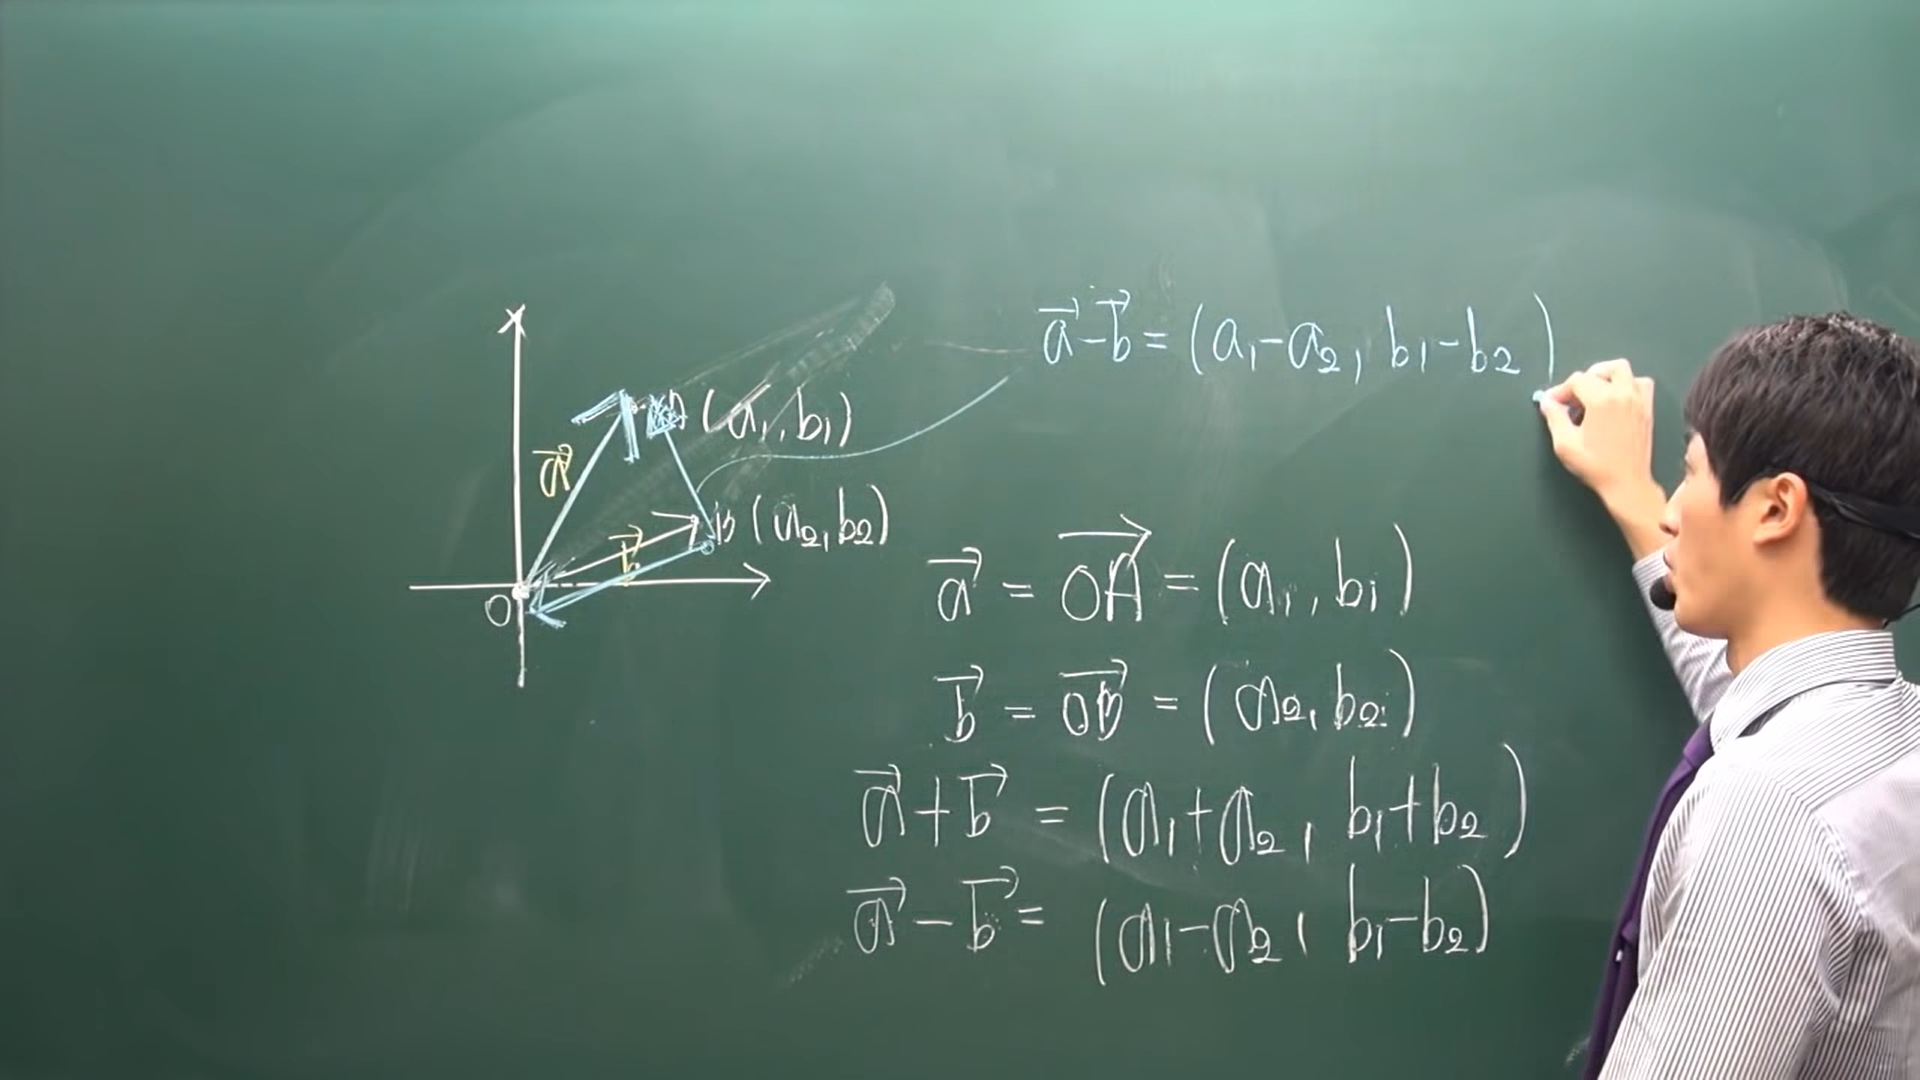 a⃗ - b⃗ = (a₁-a₂, b₁-b₂)
A (a₁, b₁)
a⃗
B (a₂, b₂)
b⃗
O
a⃗ = OA⃗ = (a₁, b₁)
b⃗ = OB⃗ = (a₂, b₂)
a⃗ + b⃗ = (a₁+a₂, b₁+b₂)
a⃗ - b⃗ = (a₁-a₂, b₁-b₂)